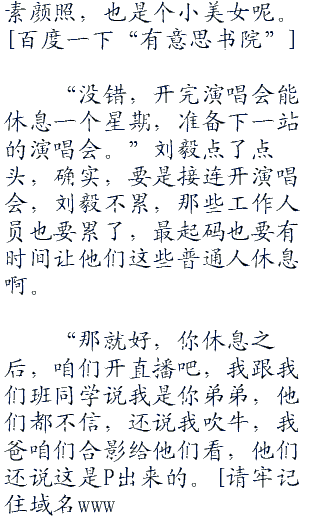 素颜照，也是个小美女呢。
[百度一下“有意思书院”]
“没错，开完演唱会能
休息一个星期，准备下一站
的演唱会。”刘毅点了点
头，确实，要是接连开演唱
会，刘毅不累，那些工作人
员也要累了，最起码也要有
时间让他们这些普通人休息
啊。
“那就好，你休息之
后，咱们开直播吧，我跟我
们班同学说我是你弟弟，他
们都不信，还说我吹牛，我
爸咱们合影给他们看，他们
还说这是P出来的。[请牢记
住域名www